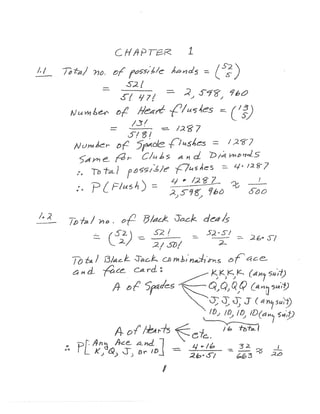 CHAPTER 1
1.1 Total no. of possible hands = (52 5)
= 52! / 5! 47! = 2,598,960
Number of Heart flushes = (13 5)
= 13! / 5! 8! = 1287
Number of Spade flushes = 1287
Same for Clubs and Diamonds
∴ Total possible flushes = 4·1287
∴ P(Flush) = 4·1287 / 2,598,960 ≈ 1/500
1.2 Total no. of Black Jack deals
= (52 2) = 52! / 2! 50! = 52·51 / 2 = 26·51
Total Black Jack combinations of ace
and face card:
K, K, K, K (any suit)
A of Spades Q, Q, Q Q (any suit)
J, J, J, J (any suit)
10, 10, 10, 10 (any suit)
16 total
A of Hearts etc.
∴ P[Any Ace and K, Q, J, or 10] = 4·16 / 26·51 = 32/663 ≈ 1/20
1